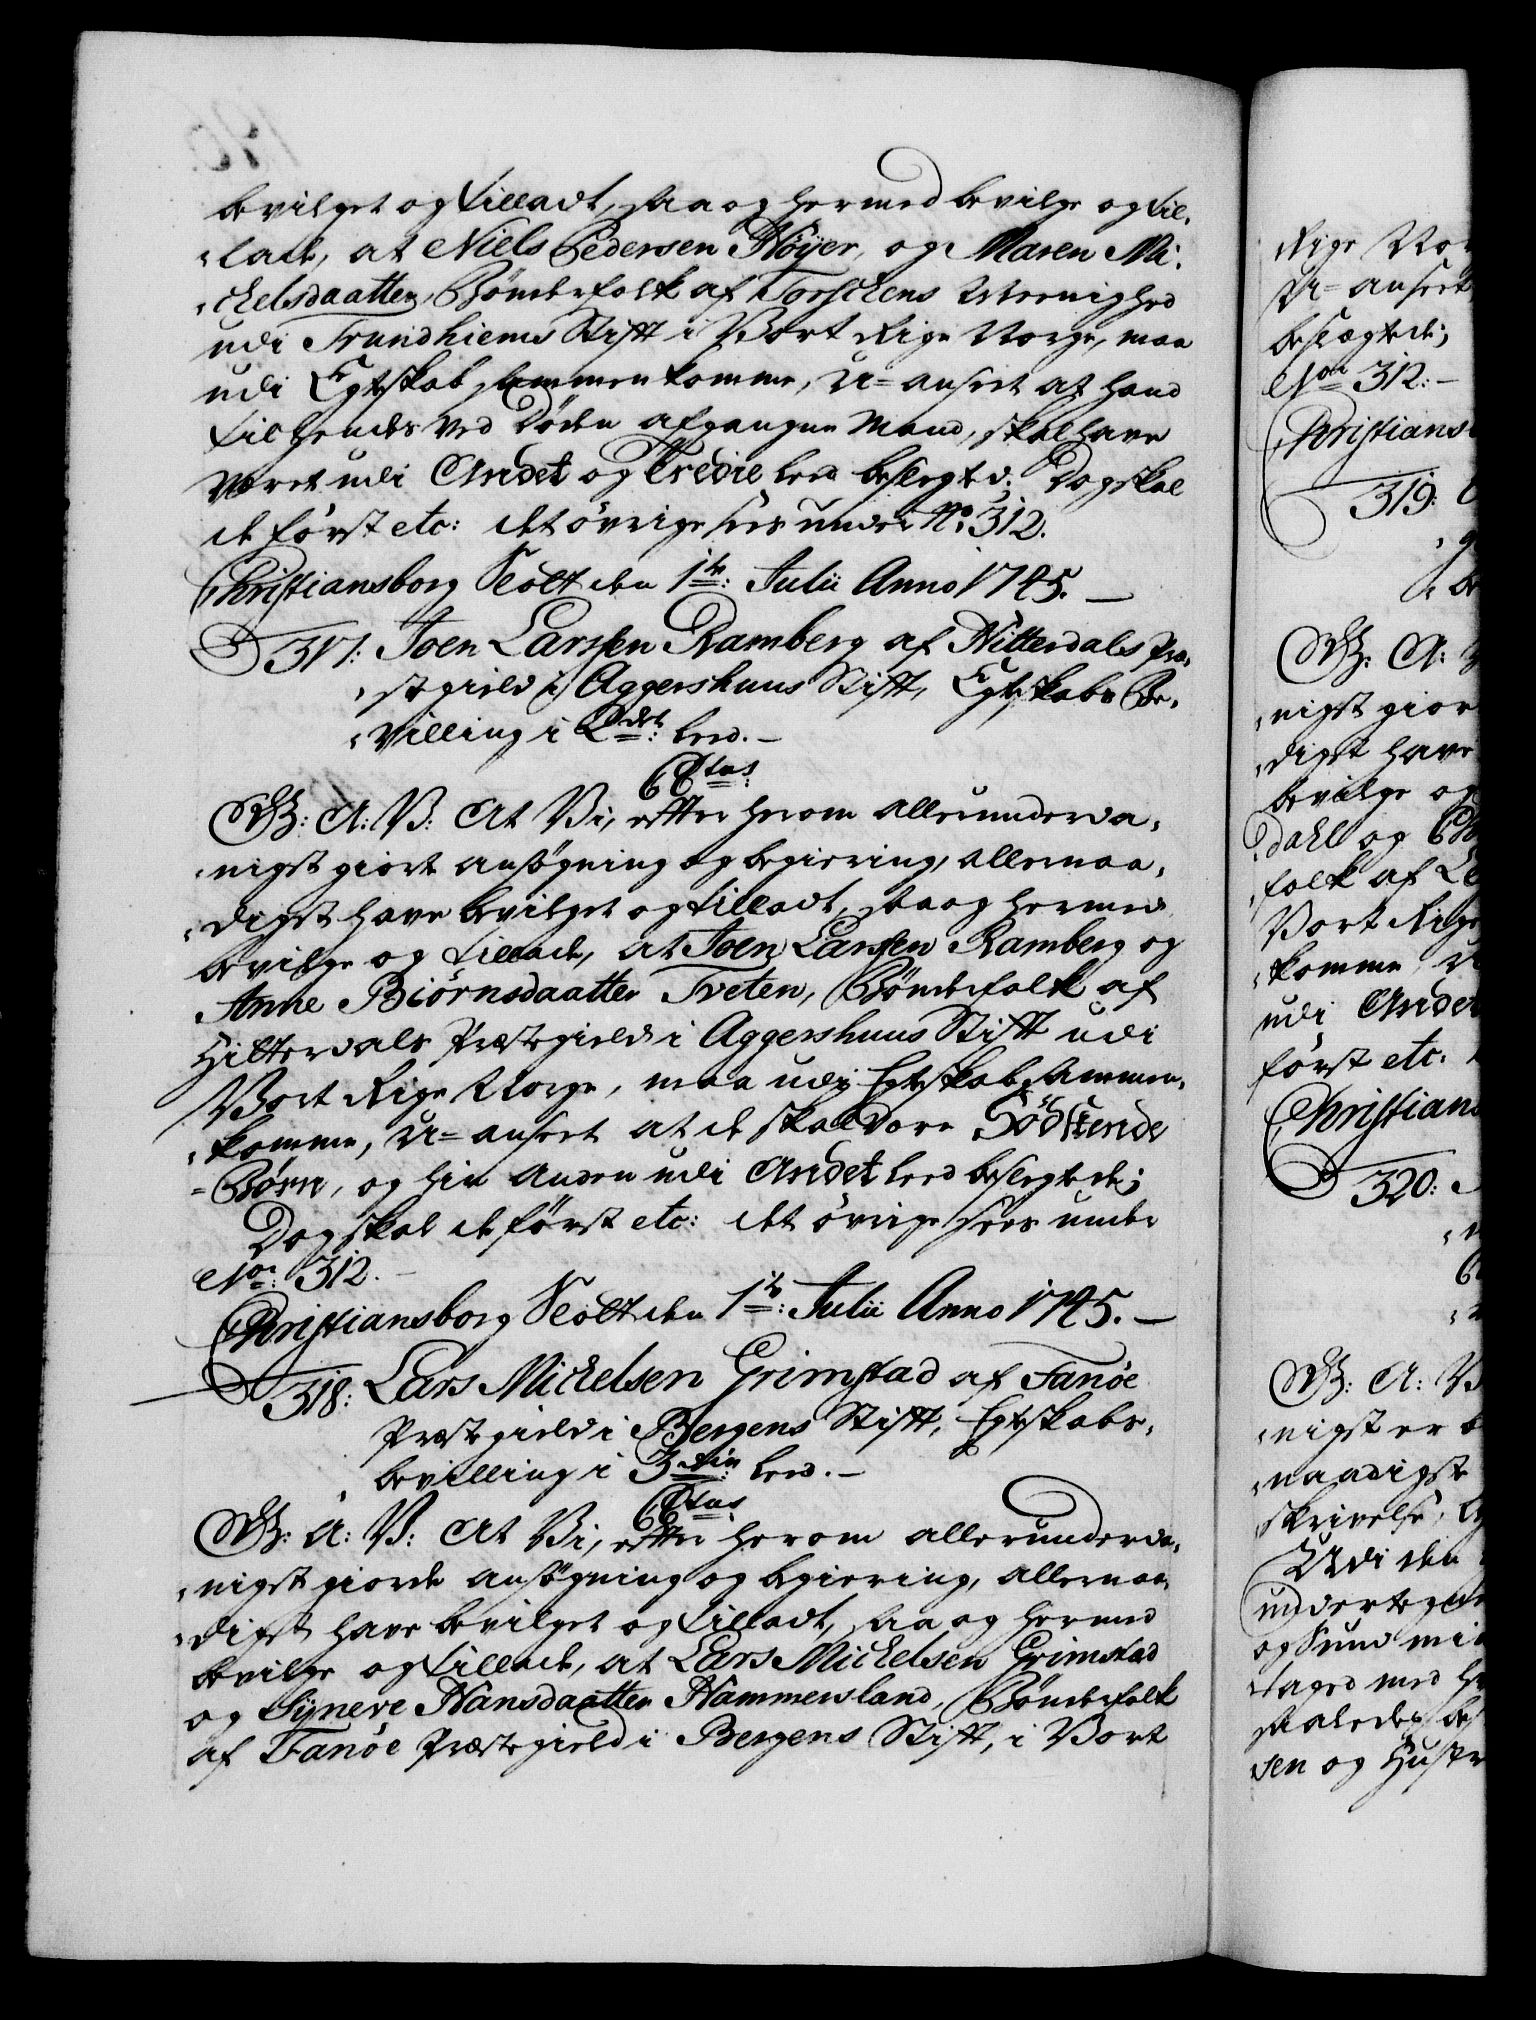 bevilget og tilladt, saa og hermed bevilge og til,
„lade, at Niels Pedersen Høÿer, og Maren Mi,
„chelsdaatter, Bønderfolk af Torschens Menighed
udi Trundhiems Stift i Vort Rige Norge, maa
udi Egteskab sammenkomme, U=anseet at hand
tilhendes ved Døden afgangne Mand, skal have
været udi Andet og Tredie Leed beslegted. Dog skal
de først etc: det øvrige sees under No. 312.
Christiansborg Slott den 1te: Julii Anno 1745. —
317: Joen Larssen Ramberg af Hitterdals Præ,
„stegield i Aggershuus Stift, Egteskabs Be,
„villing i 2det: Leed. —
Ctus
V: G: A: V: At Vi, efter herom allerunderda,
„nigst giort ansøgning og begiering, allernaa,
„digst have bevilget og tilladt, saa og hermed
bevilge og tillade, at Joen Larssen Ramberg og
Anne Biörnsdaatter Tveten, Bønderfolk af
Hitterdals Præstegield i Aggershuus Stift udi
Vort Rige Norge, maa udi Egteskab sammen,
„komme, U=anseet at de skal være Södskende
=Børn, og hin anden udi Andet Leed beslegtede;
Dog skal de först etc: det øvrige sees under
No: 312. —
Christiansborg Slott den 1te: Julii Anno 1745. —
318: Lars Michelsen Grimstad af Fanöe
Præstegield i Bergens Stift, Egteskabs,
„bevilling i 3die: Leed. —
Ctus
V: G: A: V: At Vi, efter herom allerunderda,
„nigst giorde ansøgning og begiering, allernaa,
„digst have bevilget og tilladt, saa og hermed
bevilge og tillade, at Lars Michelsen Grimstad
og Sÿneve Hansdaatter Hammersland, Bønderfolk
af Fanöe Præstegield i Bergens Stift, i Vort
Rige Nor
U=anseet
beslægtede;
No: 312. —
Christians
319:
V: G: A: V
„nigst gior
„digst have
bevilge og
Dahl og
folk af
Vort Rige
„komme,
udi Andet
først etc.
Christians
320:
V: G: A: V
„nigst er
„naadigste
skrivelse,
Udi den
undertegne
og Sund
taged med
saaledes
sen og Hustr